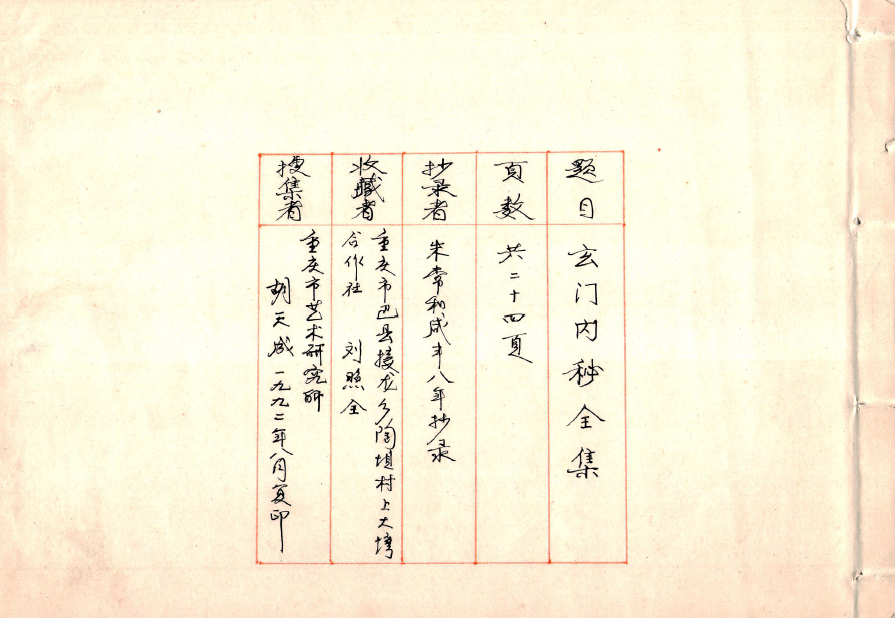 题目
玄门内秘全集
页数
共二十四頁
抄录者
朱常和咸丰八年抄录
收藏者
重庆市巴县接龙乡陶坝村上大塆
合作社 刘照全
搜集者
重庆市艺术研究所
胡天成 一九九二年八月复印